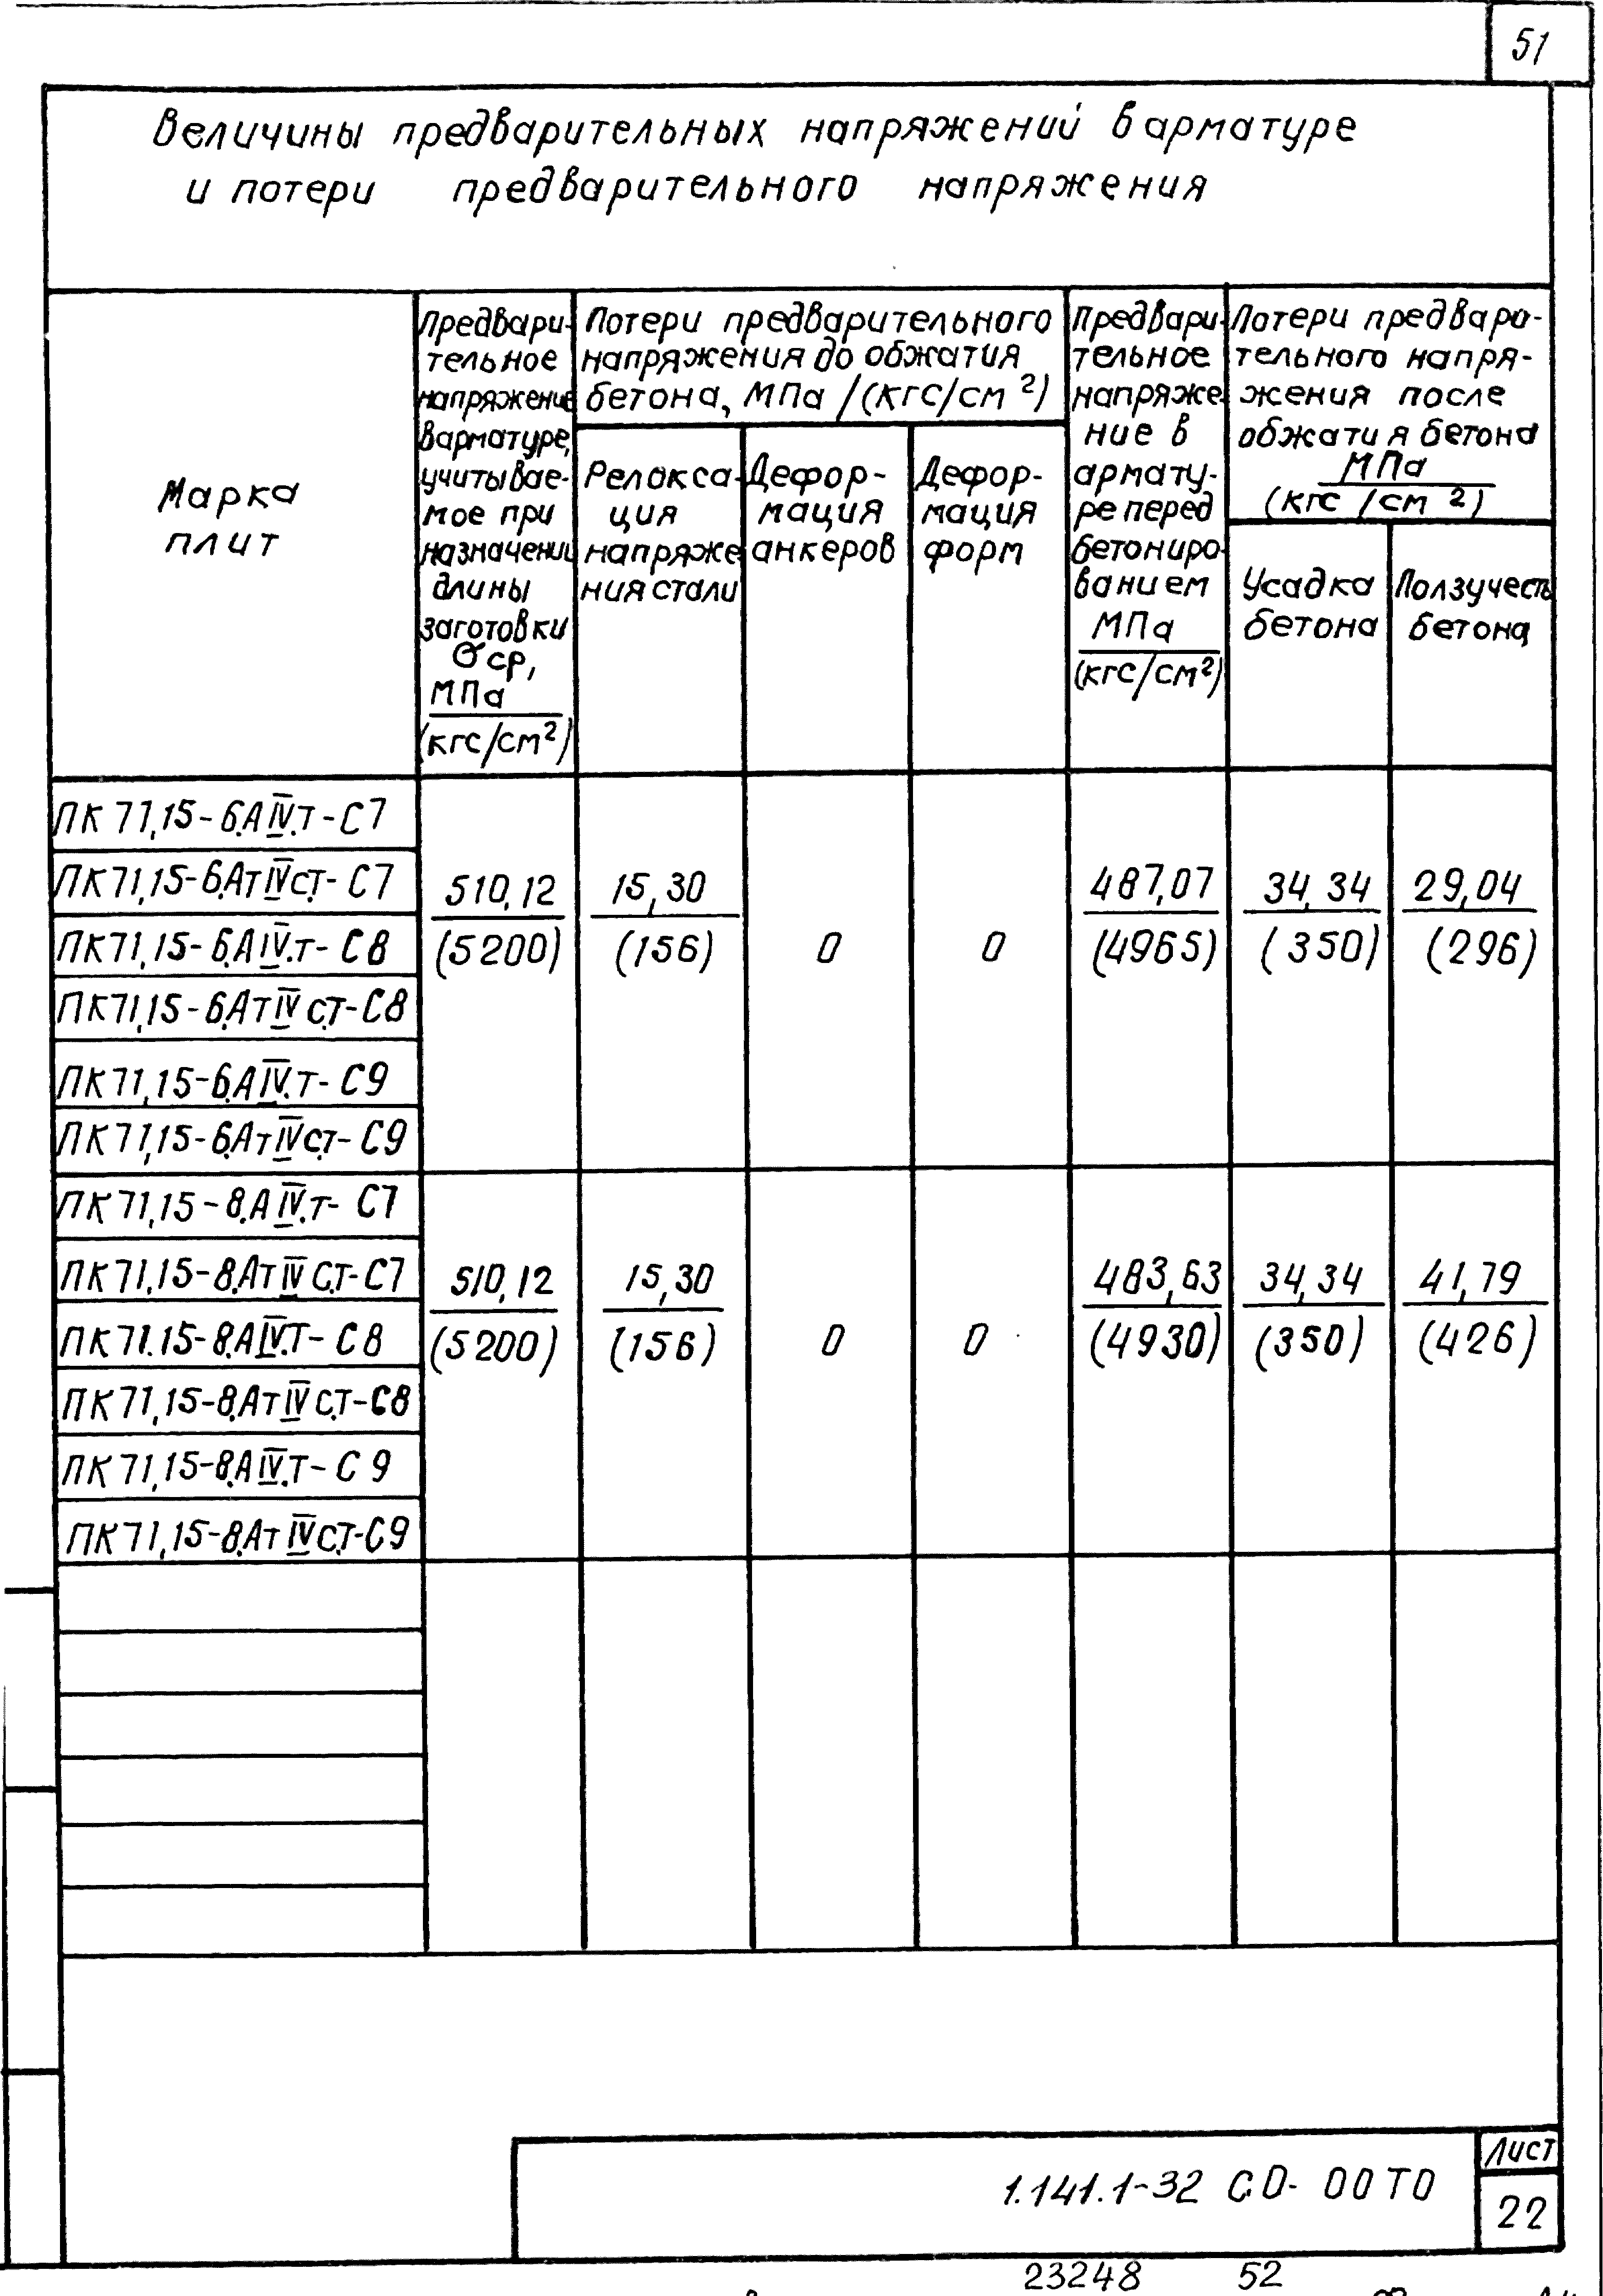 51
Величины предварительных напряжений в арматуре
и потери предварительного напряжения
Марка
плит
Предвари-
тельное
напряжение
в арматуре,
учитывае-
мое при
назначении
длины
заготовки
σср,
МПа
(кгс/см²)
Потери предварительного
напряжения до обжатия
бетона, МПа /(кгс/см²)
Релакса-
ция
напряже
ния стали
Дефор-
мация
анкеров
Дефор-
мация
форм
Предвари-
тельное
напряже-
ние в
армату-
ре перед
бетониро-
ванием
МПа
(кгс/см²)
Потери предвара-
тельного напря-
жения после
обжатия бетона
МПа
(кгс /см²)
Усадка
бетона
Ползучесть
бетона
ПК 71.15-6.АIV.т-С7
ПК71.15-6.АтIVст.-С7
ПК71.15-6.АIV.т-С8
ПК71.15-6.АтIVст.-С8
ПК71.15-6.АIV.т-С9
ПК71.15-6.АтIVст.-С9
510,12 15,30 487,07 34,34 29,04
(5200) (156) 0 0 (4965) (350) (296)
ПК71.15-8.АIV.т-С7
ПК71.15-8.АтIVс.т-С7
ПК71.15-8.АIV.Т-С8
ПК71.15-8.АтIVс.т-С8
ПК71.15-8.АIV.Т-С9
ПК71.15-8.АтIVс.т-С9
510,12 15,30 483,63 34,34 41,79
(5200) (156) 0 0 (4930) (350) (426)
1.141.1-32 С.0- 00 Т0
Лист
22
23248 52